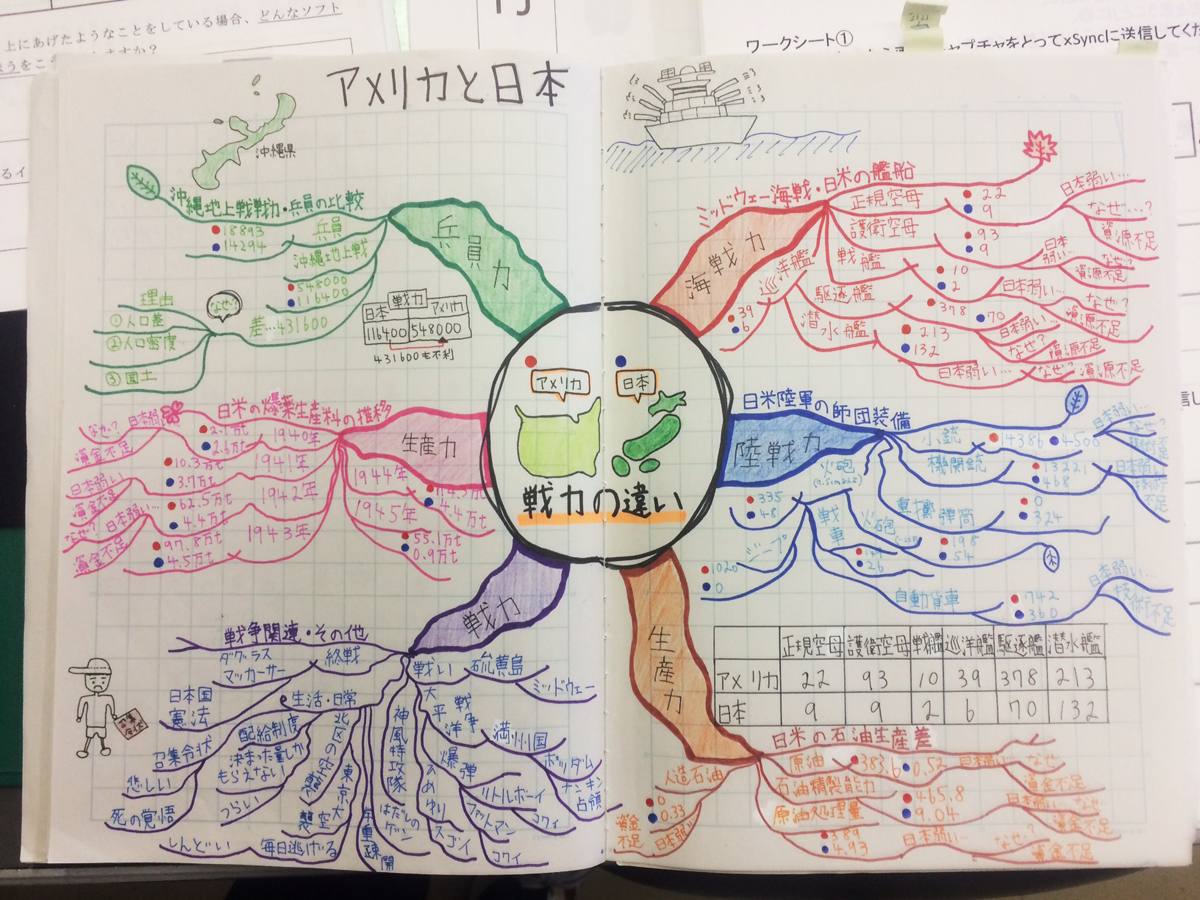 上にあげたようなことをしている場合、どんなソフト
ワークシート①
キャプチャをとってxSyncに送信してくだ
アメリカと日本
沖縄県
沖縄地上戦戦力・兵員の比較
兵員力
兵員
18893
14294
沖縄地上戦
548000
116400
差…431600
なぜ?
理由
①人口差
②人口密度
③国土
戦力
日本
アメリカ
116400
548000
431600も不利
日米の爆薬生産料の推移
生産力
1940年
2.6万t
日本弱い
なぜ?
資金不足
1941年
10.3万t
3.7万t
日本弱い
1942年
62.5万t
4.4万t
なぜ?
日本弱い…
資金不足
1943年
97.8万t
4.5万t
1944年
4.4万t
1945年
55.1万t
0.9万t
アメリカ
日本
戦力の違い
戦力
戦争関連・その他
総戦
ダグラス
マッカーサー
日本国
憲法
生活・日常
配給制度
決まった量しか
もらえない
つらい
召集令状
悲しい
死の覚悟
東京大
空襲
毎日逃げる
しんどい
神風特攻隊
はだしの
ゲン
戦い
硫黄島
ミッドウェー
太平洋戦争
満州国
ポツダム
ナンキン
占領
爆弾
リトルボーイ
コワイ
ファットマン
コワイ
スゴイ
ミッドウェー海戦・日米の艦船
海戦力
正規空母
22
9
日本弱い…
なぜ…?
資源不足
護衛空母
93
9
日本
弱い…
なぜ?
資源不足
戦艦
10
2
日本弱い…
なぜ?
資源不足
巡洋艦
39
6
駆逐艦
378
70
日本弱い…
なぜ?
資源不足
潜水艦
213
132
日本弱い…
なぜ?
資源不足
日米陸軍の師団装備
陸戦力
小銃
機関銃
13221
468
0
324
火砲
335
48
戦車
火砲
198
54
ジープ
1020
0
自動貨車
742
360
日本弱い…
技術不足
正規空母
護衛空母
戦艦
巡洋艦
駆逐艦
潜水艦
アメリカ
22
93
10
39
378
213
日本
9
9
2
6
70
132
生産力
日米の石油生産差
原油
383.6
0.52
日本弱い…
なぜ
資金不足
石油精製能力
465.8
9.04
日本弱い…
なぜ
資金不足
原油処理量
4.93
日本弱い…
なぜ?
資金不足
人造石油
0
0.33
日本弱い
資金
不足